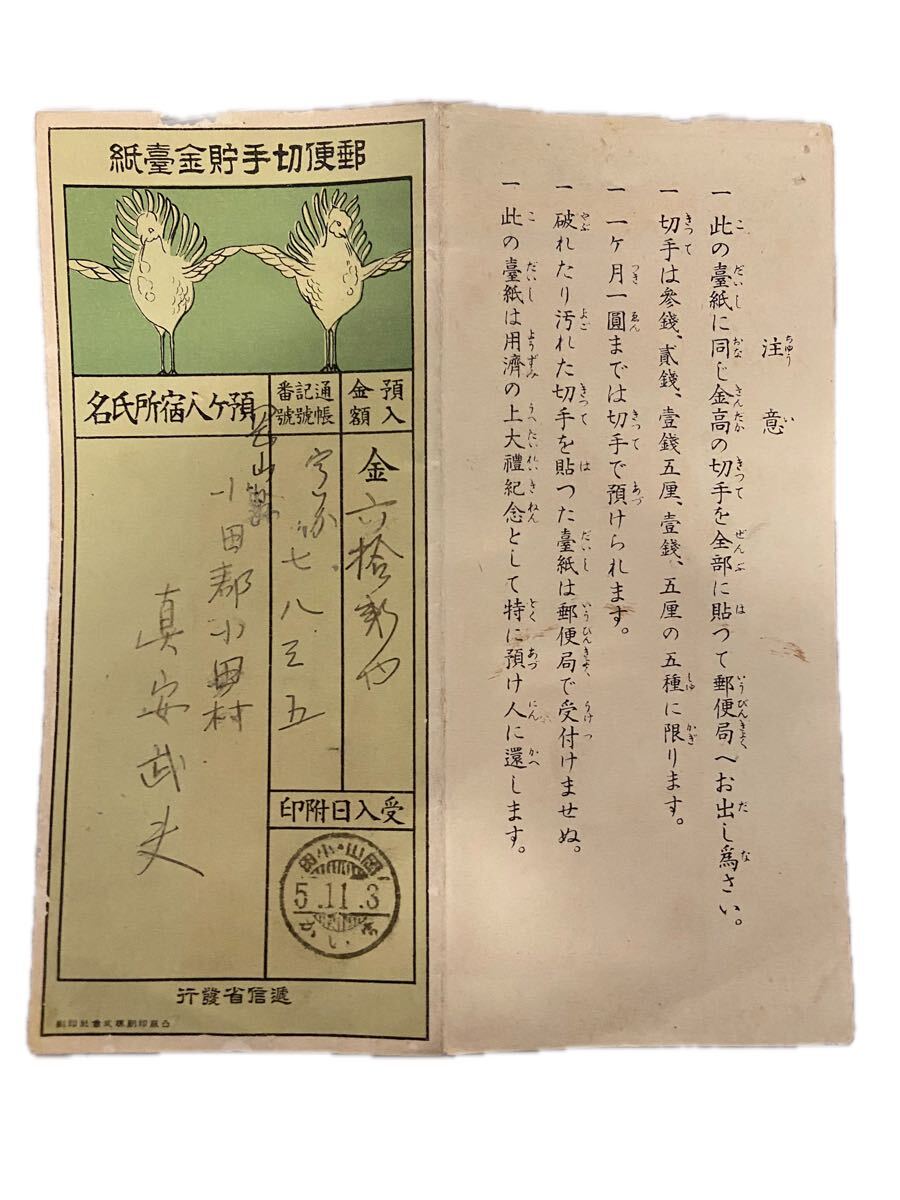 注意
一 此の臺紙に同じ金高の切手を全部に貼つて郵便局へお出し爲さい。
一 切手は參錢、貳錢、壹錢五厘、壹錢、五厘の五種に限ります。
一 一ケ月一圓までは切手で預けられます。
一 破れたり汚れた切手を貼つた臺紙は郵便局で受付けませぬ。
一 此の臺紙は用濟の上大禮紀念として特に預け人に還します。
紙臺金貯手切便郵
預入金額
金六拾
通帳記號番號
七八三五
名氏所宿人ケ預
山縣
小田郡小田村
真安武夫
印附日入受
岡山・小田
5.11.3
行發省信遞